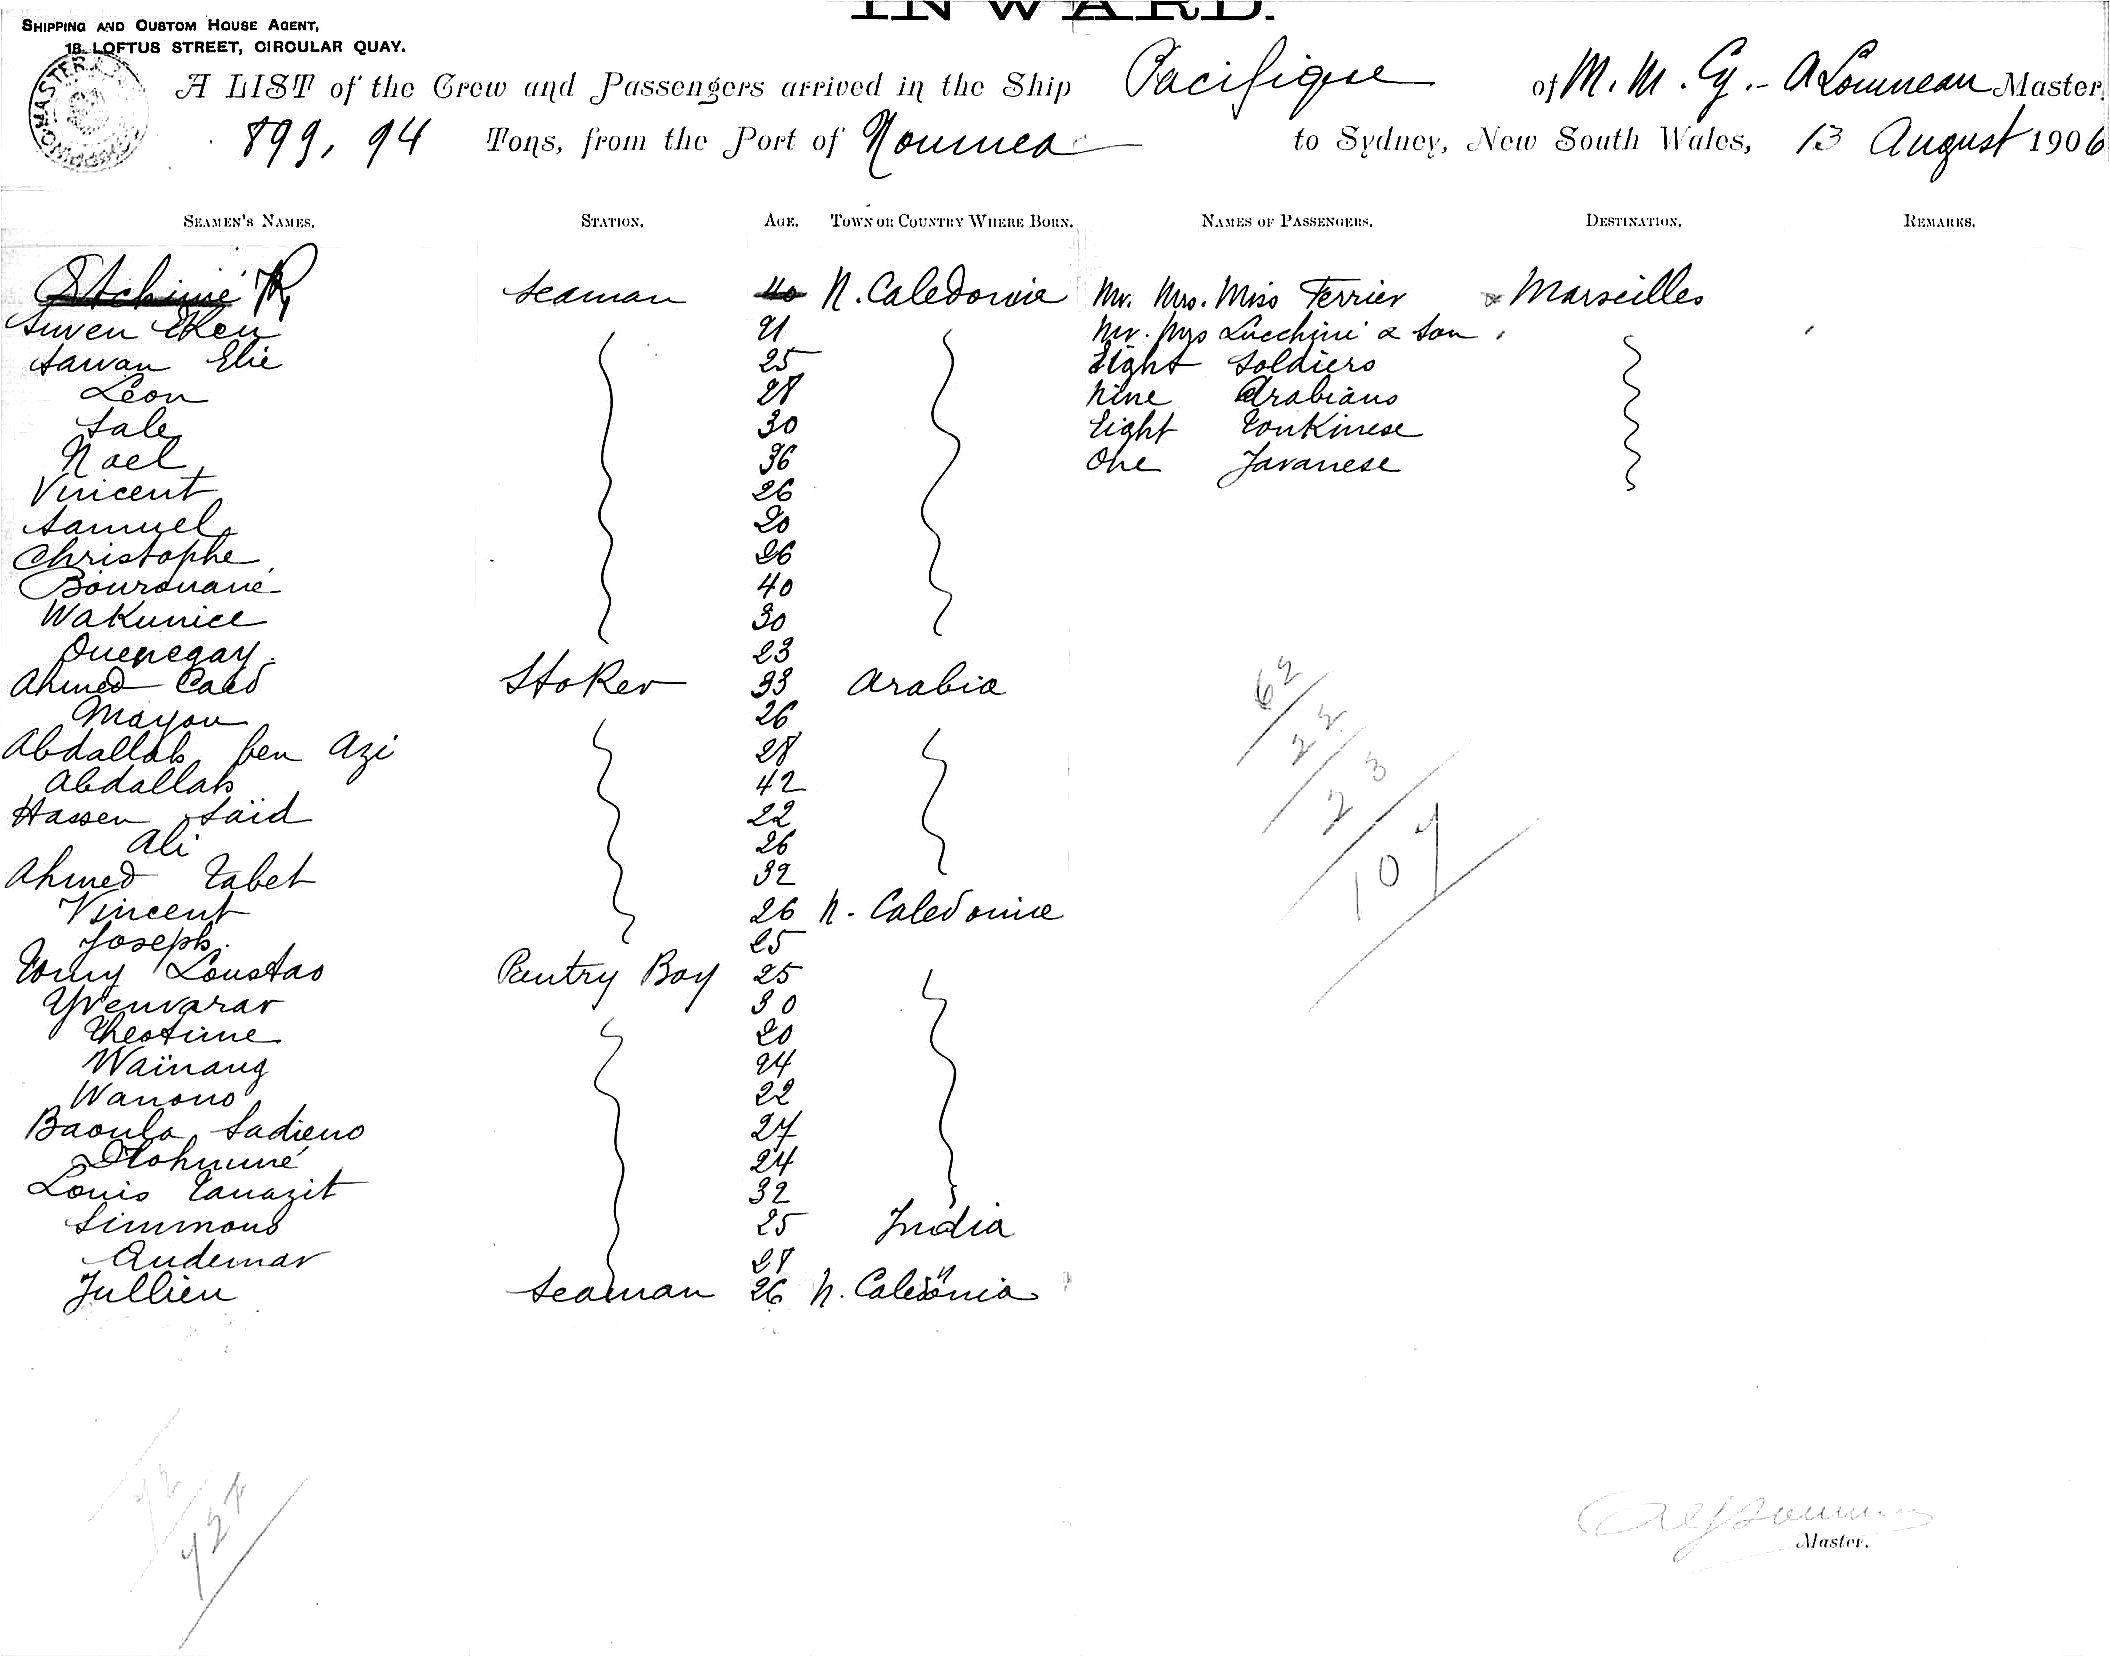 INWARD.
SHIPPING AND CUSTOM HOUSE AGENT,
18, LOFTUS STREET, CIRCULAR QUAY.
A LIST of the Crew and Passengers arrived in the Ship Pacifique of M. M. Cy. - A Loumeau Master,
899, 94 Tons, from the Port of Noumea to Sydney, New South Wales, 13 August 1906
SEAMEN'S NAMES. STATION. AGE. TOWN OR COUNTRY WHERE BORN. NAMES OF PASSENGERS. DESTINATION. REMARKS.
Seaman 40 N. Caledonia Mr. Mrs. Miss Terrier Marseilles
21 Mr. Mrs Lucchini & Son
Sawan Elie 25 Eight Soldiers
Léon 28 Nine Arabians
Sale 30 Eight Tonkinese
Noel 36 One Javanese
Vincent 26
Samuel 20
Christophe 26
Bourouané 40
Wakunice 30
Ouenegay 23
Ahmed Caed Stoker 33 Arabia
Mayou 26
Abdallah ben Azi 28
Abdallah 42
Hassen Saïd 22
Ali 26
Ahmed Tabet 32
Vincent 26 N. Caledonia
Joseph 25
Tomy Loustao Pantry Boy 25
Yvenvarar 30
Theotime 20
Waïnang 24
Wanono 22
Baoula Sadieno 27
24
Louis Tanazit 32
Simmons 25 India
Audemar 28
Jullien Seaman 26 N. Caledonia
62
22
23
107
Master.